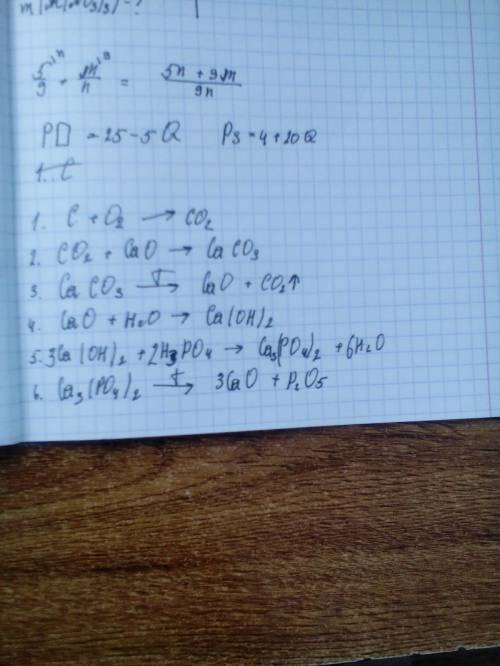 5/9 + m/n = 5n + 9m / 9n
PD = 25 - 5Q Ps = 4 + 20Q
1. C
1. C + O₂ → CO₂
2. CO₂ + CaO → CaCO₃
3. CaCO₃ →T CaO + CO₂↑
4. CaO + H₂O → Ca(OH)₂
5. 3Ca(OH)₂ + 2H₃PO₄ → Ca₃(PO₄)₂ + 6H₂O
6. Ca₃(PO₄)₂ →T 3CaO + P₂O₅